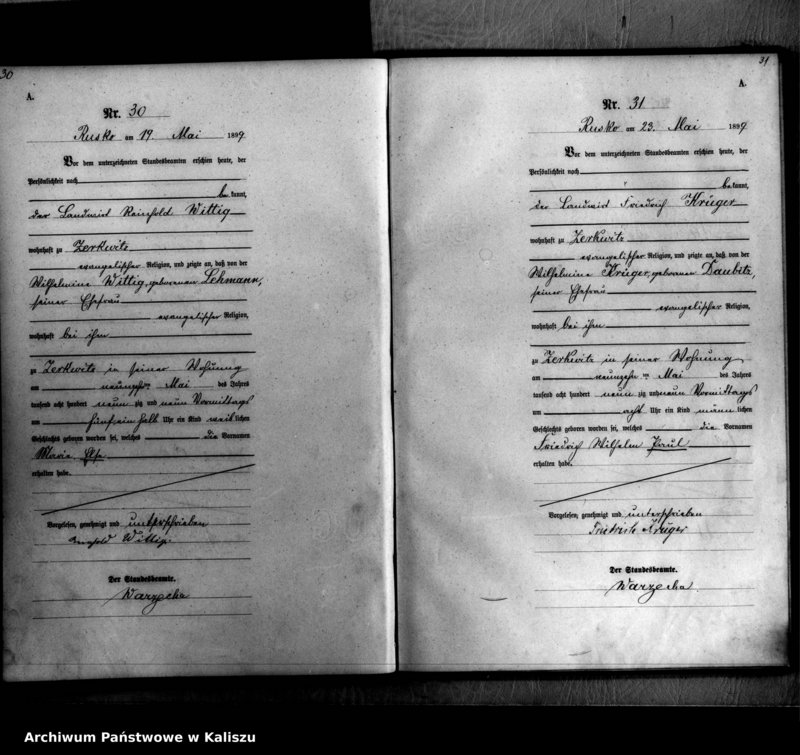 30
A.
Nr. 30
Rusko am 19. Mai 1899.
Vor dem unterzeichneten Standesbeamten erschien heute, der
Persönlichkeit nach
bekannt,
der Landwirt Reinhold Wittig
wohnhaft zu Zerkwitz
evangelischer Religion, und zeigte an, daß von der
Wilhelmine Wittig, geborenen Lehmann,
seiner Ehefrau
evangelischer Religion,
wohnhaft bei ihm
zu Zerkwitz in seiner Wohnung
am neunzehn ten Mai des Jahres
tausend acht hundert neun zig und neun Vormittags
um fünf ein halb Uhr ein Kind weiblichen
Geschlechts geboren worden sei, welches die Vornamen
Marie Else
erhalten habe.
Vorgelesen, genehmigt und unterschrieben
Reinhold Wittig.
Der Standesbeamte.
Warzecha
31
A.
Nr. 31
Rusko am 23. Mai 1899
Vor dem unterzeichneten Standesbeamten erschien heute, der
Persönlichkeit nach
bekannt,
der Landwirt Friedrich Krüger
wohnhaft zu Zerkwitz
evangelischer Religion, und zeigte an, daß von der
Wilhelmine Krüger, geborenen Daubitz,
seiner Ehefrau
evangelischer Religion,
wohnhaft bei ihm
zu Zerkwitz in seiner Wohnung
am neunzehn ten Mai des Jahres
tausend acht hundert neun zig und neun Vormittags
um acht Uhr ein Kind männlichen
Geschlechts geboren worden sei, welches die Vornamen
Friedrich Wilhelm Paul
erhalten habe.
Vorgelesen, genehmigt und unterschrieben
Friedrich Krüger
Der Standesbeamte.
Warzecha.
Archiwum Państwowe w Kaliszu